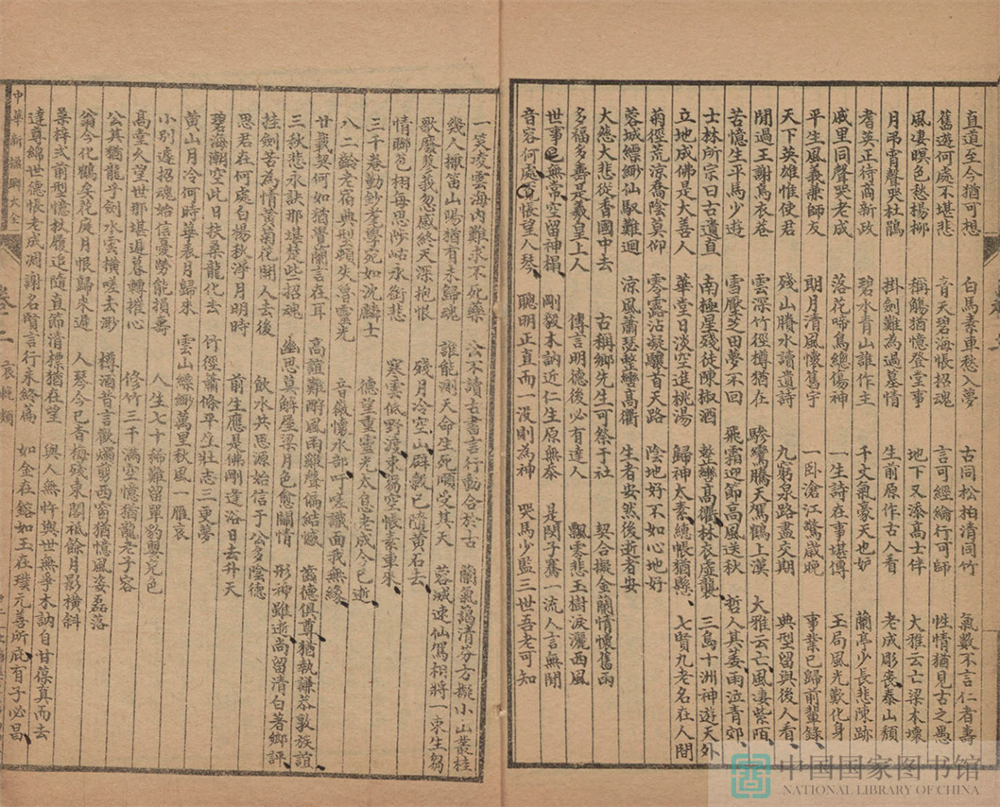 直道至今猶可想 白馬素車愁入夢 古同松柏清同竹 氣數不言仁者壽
舊遊何處不堪悲 青天碧海悵招魂 言可經綸行可師 性情猶見古之愚
風凄暝色愁揚柳 稱觴猶憶登堂事 地下又添高士伴 大雅云亡梁木壞
月弔宵聲哭杜鵑 掛劍難為過墓情 生前原作古人看 老成彫喪泰山頹
耆英正待商新政 碧水青山誰作主 千文氣豪天也妒 蘭亭少長悲陳跡
戚里同聲哭老成 落花啼鳥總傷神 一生詩在事堪傳 王局風光歎化身
平生風義兼師友 期月清風懷舊宇 一卧滄江驚歲晚 事業已歸前輩錄
天下英雄惟使君 殘山賸水讀遺詩 九窮泉路盡交期 典型留與後人看
聞過王謝烏衣巷 雲深竹徑樽猶在 驂鸞騰天駕鶴上漢 大雅云亡風凄紫陌
苦憶生平馬少遊 雪壓芝田夢不回 飛霜迎節高風送秋 哲人其萎雨泣青郊
士林所宗曰古遺直 南極星殘徒陳椒酒 整轡高衢林衣虛襲 三島十洲神遊天外
立地成佛是大善人 華堂日淡空進桃湯 歸神太素總帳猶縣 七賢九老名在人間
菊徑荒涼喬陰莫仰 零露沾凝驤首天路 陰地好不如心地好
蓉城縹緲仙馭難迴 涼風蕭瑟整轡高衢 生者安然後逝者安
大慈大悲從香國中去 古稱鄉先生可祭于社 契合撮金蘭情懷舊雨
多福多壽是羲皇上人 傳言明德後必有達人 飄零悲玉樹淚灑西風
世事已無常空留神榻 剛毅木訥近仁生原無忝 是閔子騫一流人言無閒
音容何處覓悵望人琴 聰明正直而一沒則為神 哭馬少監三世吾老可知
一笑凌雲海內難求不死藥 公不讀古書言行動合於古 蘭氣藹清芬方擬小山叢桂
幾人橄笛山陽猶有未歸魂 誰能測天命生死順受其天 蓉城速仙駕相將一束生芻
歌廢莪我忽感終天深抱恨 殘月冷空山辟穀已隨黃石去
情聯苞栩每思陟岵永銜悲 寒雲低野渡束芻空悵素車來
三千卷勤鈔孝尊死如沈麟士 德望重靈光太息老成今已逝
八二齡老宿典型頓失魯靈光 音徽懷水部吁嗟識面我無緣
廿載契何如猶覺蘭言在耳 高誼難酬風雨緞聲偏結憾 齒德俱尊猶執謙恭敦族誼
三秋悲永訣那堪楚些招魂 幽思莫解屋梁月色愈關情 形神雖逝尚留清白著鄉評
挂劍苦為情黃菊花開人去後 飲水共思源始信于公多陰德
思君在何處白楊秋淨月明時 前生應是佛剛逢浴日去升天
碧海潮空此日扶桑龍化去 竹徑蕭條平生壯志三更夢
黃山月冷何時華表月歸來 雲山縹緲萬里秋風一雁哀
小別遽招魂始信憂勞能損壽 人生七十稀難留單豹嬰兒色
高堂久望世那堪遲暮轉摧心 修竹三千滿空憶猶龍老子容
公其猶龍乎劍水雲橫嗟去渺 樽酒昔言歡燭剪西窗猶憶風姿磊落
翁今化鶴矣花庚月恨歸來遲 人琴今已杳梅殘東閣祗餘月影橫斜
桑梓式前型憶杖履追隨直節清標猶在望 與人無忤與世無爭木訥自甘葆真而去
達真綿世德悵老成凋謝名賢言行未終篇 如金在鎔如玉在璞元善所庇有子必昌
中華新楹聯大全
卷二
哀輓類
中国国家图书馆
NATIONAL LIBRARY OF CHINA